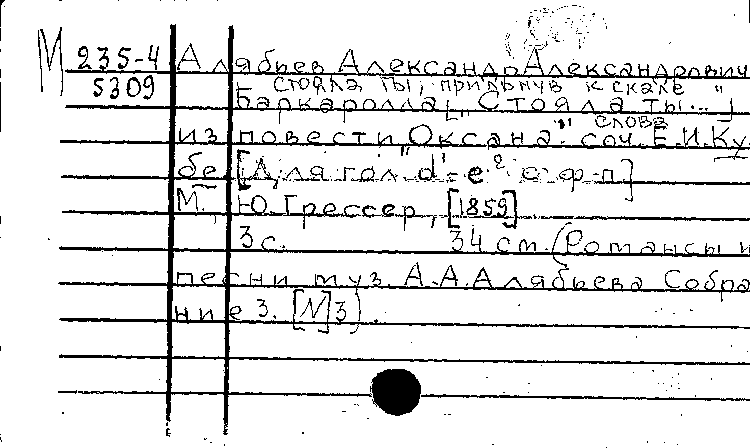 М 235-4 Алябьев Александр Александрович
5309 стояла ты, прильнув к скале
Баркаролла [„Стояла ты..."]
слова
из повести „Оксана" соч. Е.И. Ку-
бе. [Для гол. d¹-e² с ф-п]
М., Ю. Грессер, [1859]
3 с. 34 см. (Романсы и
песни муз. А.А. Алябьева Собра
ние 3. [N]3).